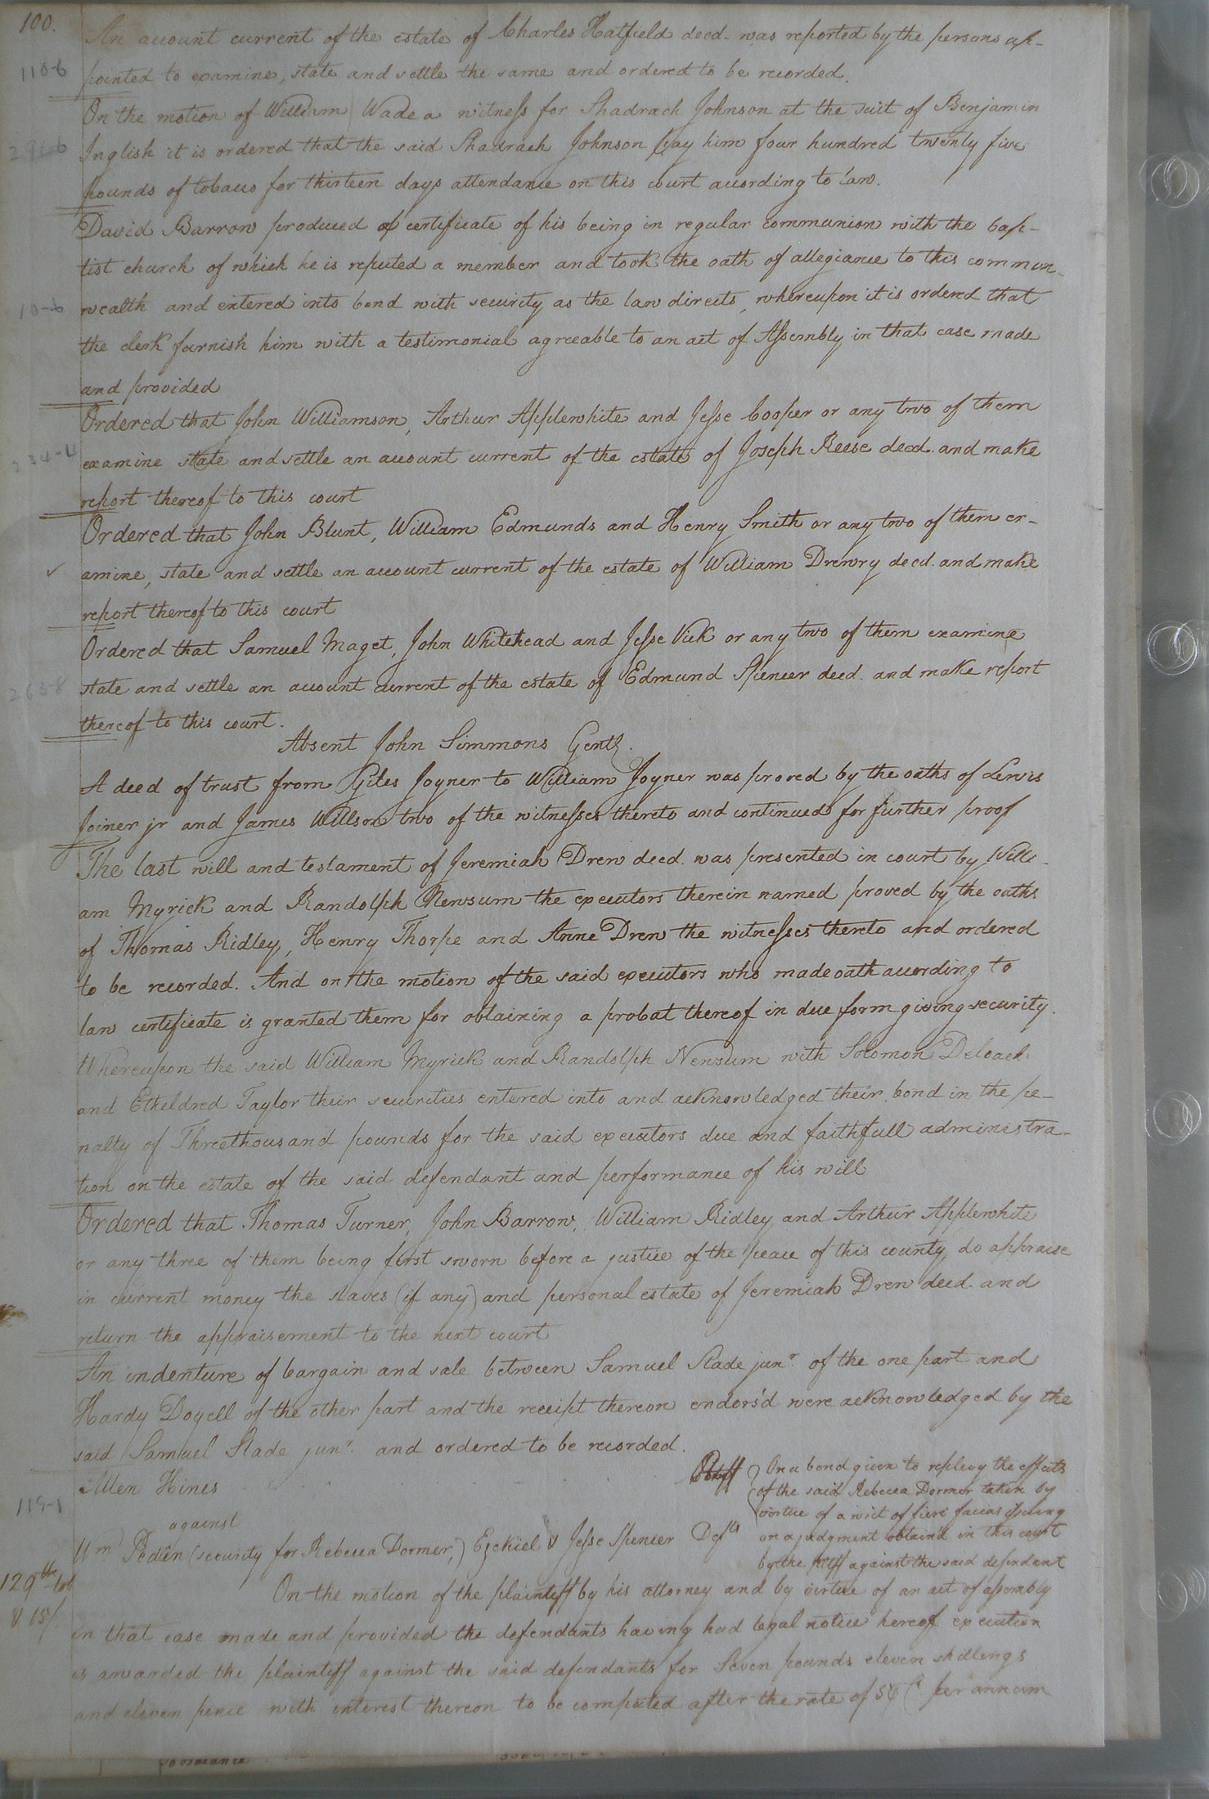 100.
An account current of the estate of Charles Hatfield decd. was reported by the persons ap-
118-6
pointed to examine, state and settle the same and ordered to be recorded.
On the motion of William Wade a witness for Shadrach Johnson at the suit of Benjamin
Inglish it is ordered that the said Shadrach Johnson pay him four hundred twenty five
pounds of tobacco for thirteen days attendance on this court according to law.
David Barrow produced a certificate of his being in regular communion with the bap-
tist church of which he is reputed a member and took the oath of allegiance to this common-
10-6
wealth and entered into bond with security as the law directs, whereupon it is ordered that
the clerk furnish him with a testimonial agreeable to an act of Assembly in that case made
and provided
Ordered that John Williamson, Arthur Applewhite and Jesse Cooper or any two of them
234-4
examine state and settle an account current of the estate of Joseph Reese decd. and make
report thereof to this court
Ordered that John Blunt, William Edmunds and Henry Smith or any two of them ex-
amine, state and settle an account current of the estate of William Drewry decd. and make
report thereof to this court
Ordered that Samuel Maget, John Whitehead and Jesse Vick or any two of them examine
263-8
state and settle an account current of the estate of Edmund Spencer decd. and make report
thereof to this court.
Absent John Simmons Gentl.
A deed of trust from Giles Joyner to William Joyner was proved by the oaths of Lewis
Joiner jr and James Willson two of the witnesses thereto and continued for further proof
The last will and testament of Jeremiah Drew decd. was presented in court by Willi-
am Myrick and Randolph Newsum the executors therein named proved by the oaths
of Thomas Ridley, Henry Thorpe and Anne Drew the witnesses thereto and ordered
to be recorded. And on the motion of the said executors who made oath according to
law certificate is granted them for obtaining a probat thereof in due form giving security.
Whereupon the said William Myrick and Randolph Newsum with Solomon Deloach
and Etheldred Taylor their securities entered into and acknowledged their bond in the pe-
nalty of Three thousand pounds for the said executors due and faithfull administra-
tion on the estate of the said defendant and performance of his will
Ordered that Thomas Turner, John Barrow, William Ridley and Arthur Applewhite
or any three of them being first sworn before a justice of the peace of this county do appraise
in current money the slaves (if any) and personal estate of Jeremiah Drew decd. and
return the appraisement to the next court
An indenture of bargain and sale between Samuel Slade junr. of the one part and
Hardy Doyell of the other part and the receipt thereon endors'd were acknowledged by the
said Samuel Slade junr. and ordered to be recorded.
Allen Hines Plaintiff
119-1
against
Wm Peden (security for Rebecca Dormer,) Ezekiel & Jesse Spencer Defts
On a bond given to replevy the effects
of the said Rebecca Dormer taken by
virtue of a writ of fieri facias issuing
on a judgment obtain'd in this court
by the pltff against the said defendant
129 lb tob
& 15/.
On the motion of the plaintiff by his attorney and by virtue of an act of assembly
in that case made and provided the defendants having had legal notice hereof execution
is awarded the plaintiff against the said defendants for Seven pounds eleven shillings
and eleven pence with interest thereon to be computed after the rate of per annum